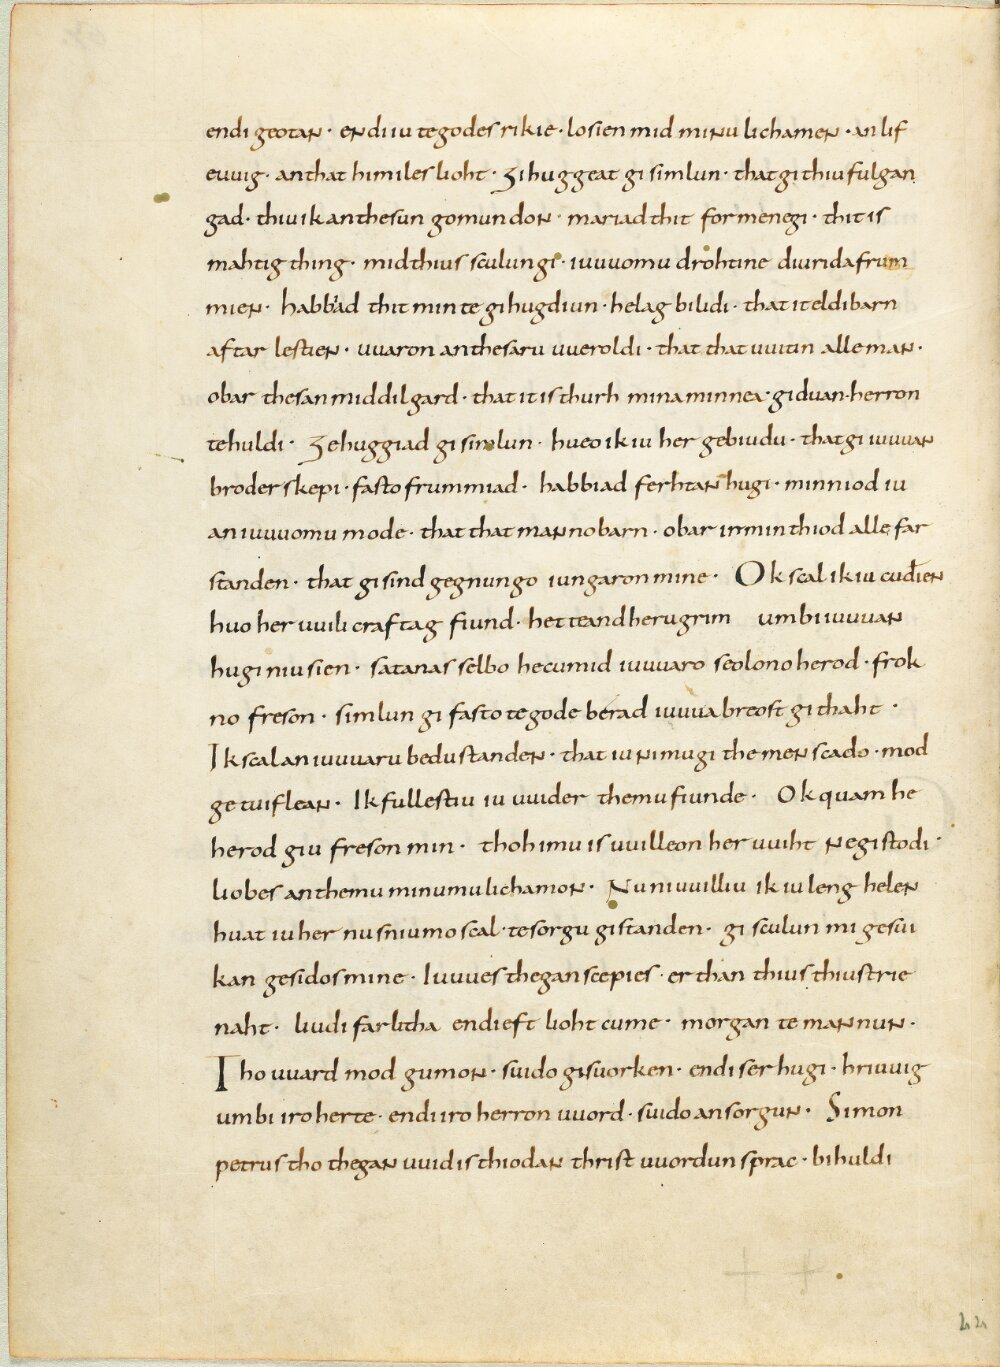 endi geotan · endi iu te godes rikie · losien mid minu lichamen · an lif
euuig · an that himiles lioht · Gihuggeat gi simlun · that gi thiu fulgan
gad · thiu ik an thesun gomun don · mariad thit for menegi · thit is
mahtig thing · mid thius sculun gi · iuuuomu drohtine diurida frum
mien · habbad thit min te gihugdiun · helag bilidi · that it eldibarn
aftar lestien · uuaron an thesaru uueroldi · that that uuitin alle man ·
obar thesan middilgard · that it is thurh mina minnea · giduan · herron
te huldi · Gehuggiad gi simlun · hueo ik iu her gebiudu · that gi iuuuan
broderskepi · fasto frummiad · habbiad ferhtan hugi · minniod iu
an iuuuomu mode · that that manno barn · obar irminthiod alle far
standen · that gi sind gegnungo iungaron mine · Ok scal ik iu cuđien
huo her uuili craftag fiund · hetteand herugrim umbi iuuuan
hugi niusien · satanas selbo he cumid iuuuaro seolono herod · frok
no freson · simlun gi fasto te gode berad iuuua breost githaht ·
Ik scal an iuuuaru bedu standen · that iu ni mugi the menscado · mod
getuiflean · Ik fullestiu iu uuider themu fiunde · Ok quam he
herod giu freson min · thoh imu is uuilleon her uuiht ne gistodi ·
liobes an themu minumu lichamon · Nu ni uuilliu ik iu leng helen
huat iu her nu sniumo scal · te sorgu gistanden · gi sculun mi gesui
kan gesidos mine · Iuuues theganscepies · er than thius thiustrie
naht · liudi farlitha endi eft lioht cume · morgan te mannun ·
Tho uuard mod gumon · suido gisuorken · endi ser hugi · hriuuig
umbi iro herte · endi iro herron uuord · suido an sorgun · Simon
petrus tho thegan uuid is thiodan thrist uuordun sprac · bi huldi